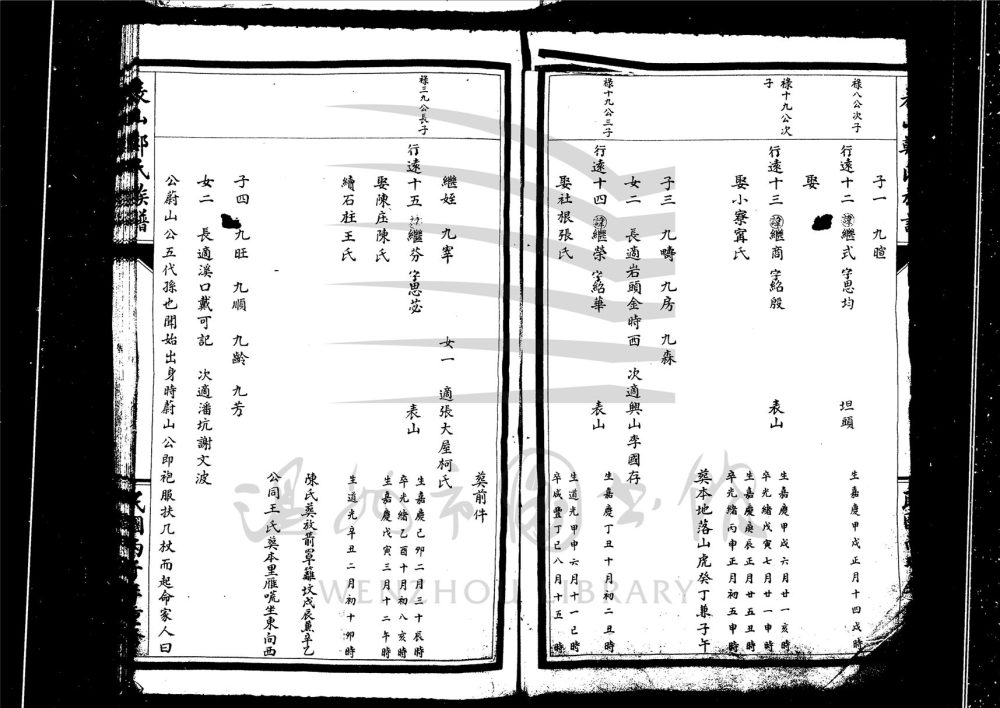 子一 九暄
祿八公次子
行遠十二 諱繼式 字思均 坦頭 生嘉慶甲戌正月十四戌時
娶
祿十九公次子
行遠十三 諱繼商 字紹殷 表山 生嘉慶甲戌六月廿一亥時
卒光緒戊寅七月廿一申時
娶小寮甯氏 生嘉慶庚辰正月廿五丑時
卒光緒丙申正月初五申時
葬本地落山虎癸丁兼子午
子三 九疇 九房 九森
女二 長適岩頭金時西 次適興山李國存
祿十九公三子
行遠十四 諱繼榮 字紹華 表山 生嘉慶丁丑十月初二丑時
娶社根張氏 生道光甲申六月十一己時
卒咸豐丁巳八月十五 時
葬前件
繼姪 九宰 女一 適張大屋柯氏
祿三九公長子
行遠十五 諱繼芬 字思苾 表山 生嘉慶己卯二月三十辰時
卒光緒乙酉十月初八亥時
娶陳庄陳氏 生嘉慶戊寅三月十二午時
續石柱王氏 生道光辛丑二月初十卯時
陳氏葬放箭罩籬坟戌辰兼辛乙
公同王氏葬本里雁吭坐東向西
子四 九旺 九順 九齡 九芳
女二 長適溪口戴可記 次適潘坑謝文波
公蔚山公五代孫也聞始出身時蔚山公即袍服扶几杖而起命家人曰
表山鄭氏族譜
民國丙子年重修
溫州市图书馆
WENZHOU LIBRARY